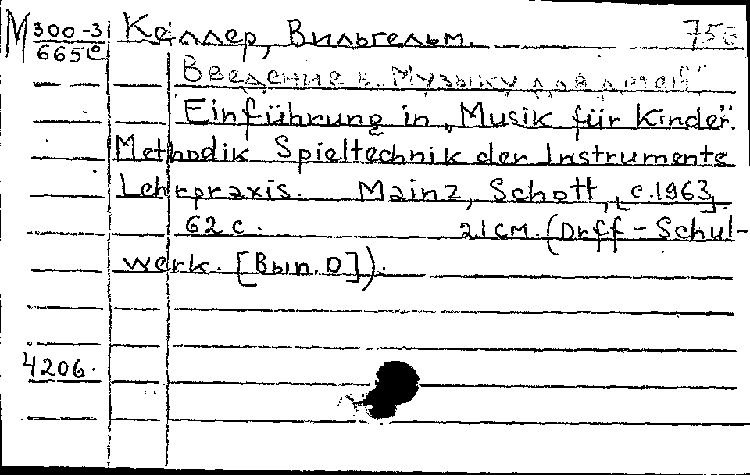 М 300-3 Келлер, Вильгельм.
665
Введение в "Музыку для детей"
Einführung in „Musik für Kinder".
Methodik Spieltechnik der Instrumente
Lehrpraxis. Mainz, Schott, [c.1963].
62 с. 21 см. (Orff-Schul-
werk. [Вып. 0]).
4206.